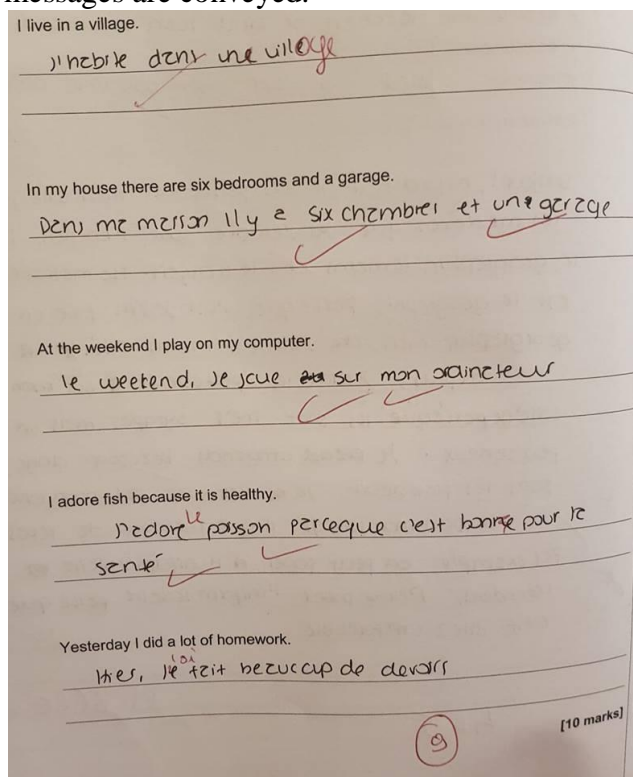 messages are conveyed.
I live in a village.
J'habite dans une village
In my house there are six bedrooms and a garage.
Dans ma maison Il y a six chambres et une garage
At the weekend I play on my computer.
le weekend, Je joue sur mon ordinateur
I adore fish because it is healthy.
J'adore le poisson parceque c'est bonne pour la
santé
Yesterday I did a lot of homework.
Hier, Je fait beaucoup de devoirs
9
[10 marks]